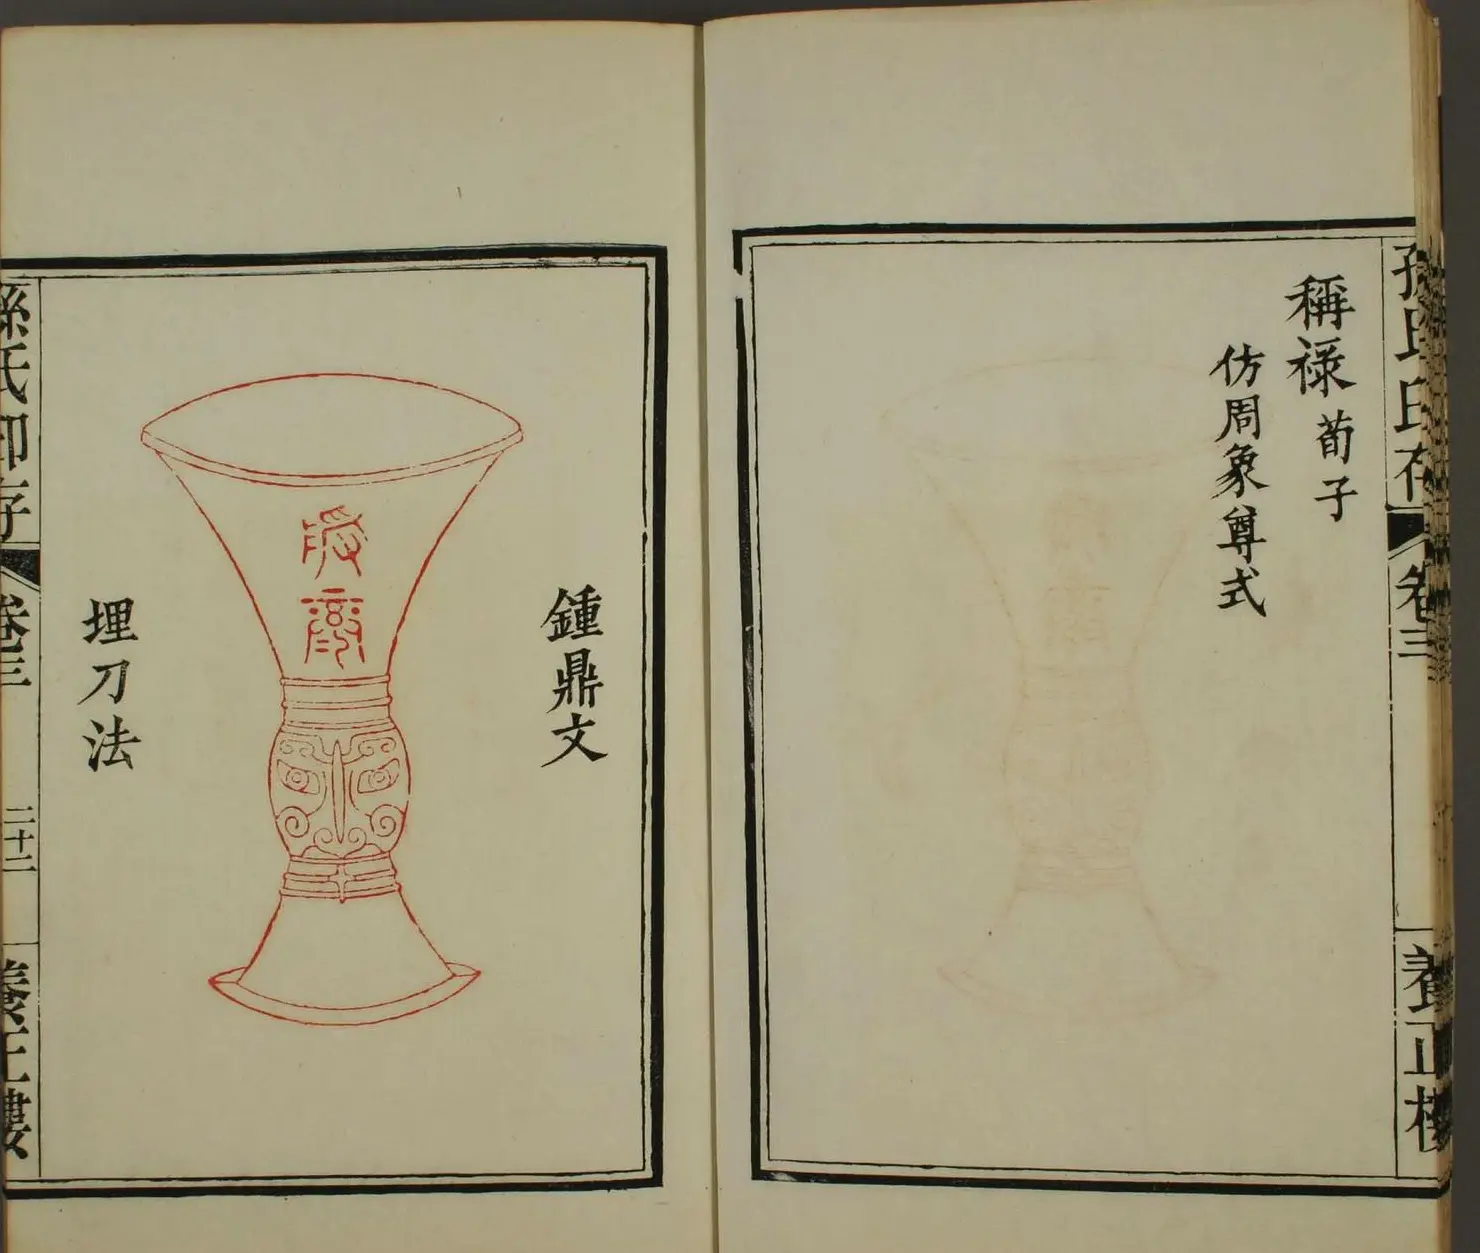 孫氏印存
卷三
養正樓
稱祿 荀子
仿周象尊式
鍾鼎文
埋刀法
孫氏印存
卷三
二十二
養正樓